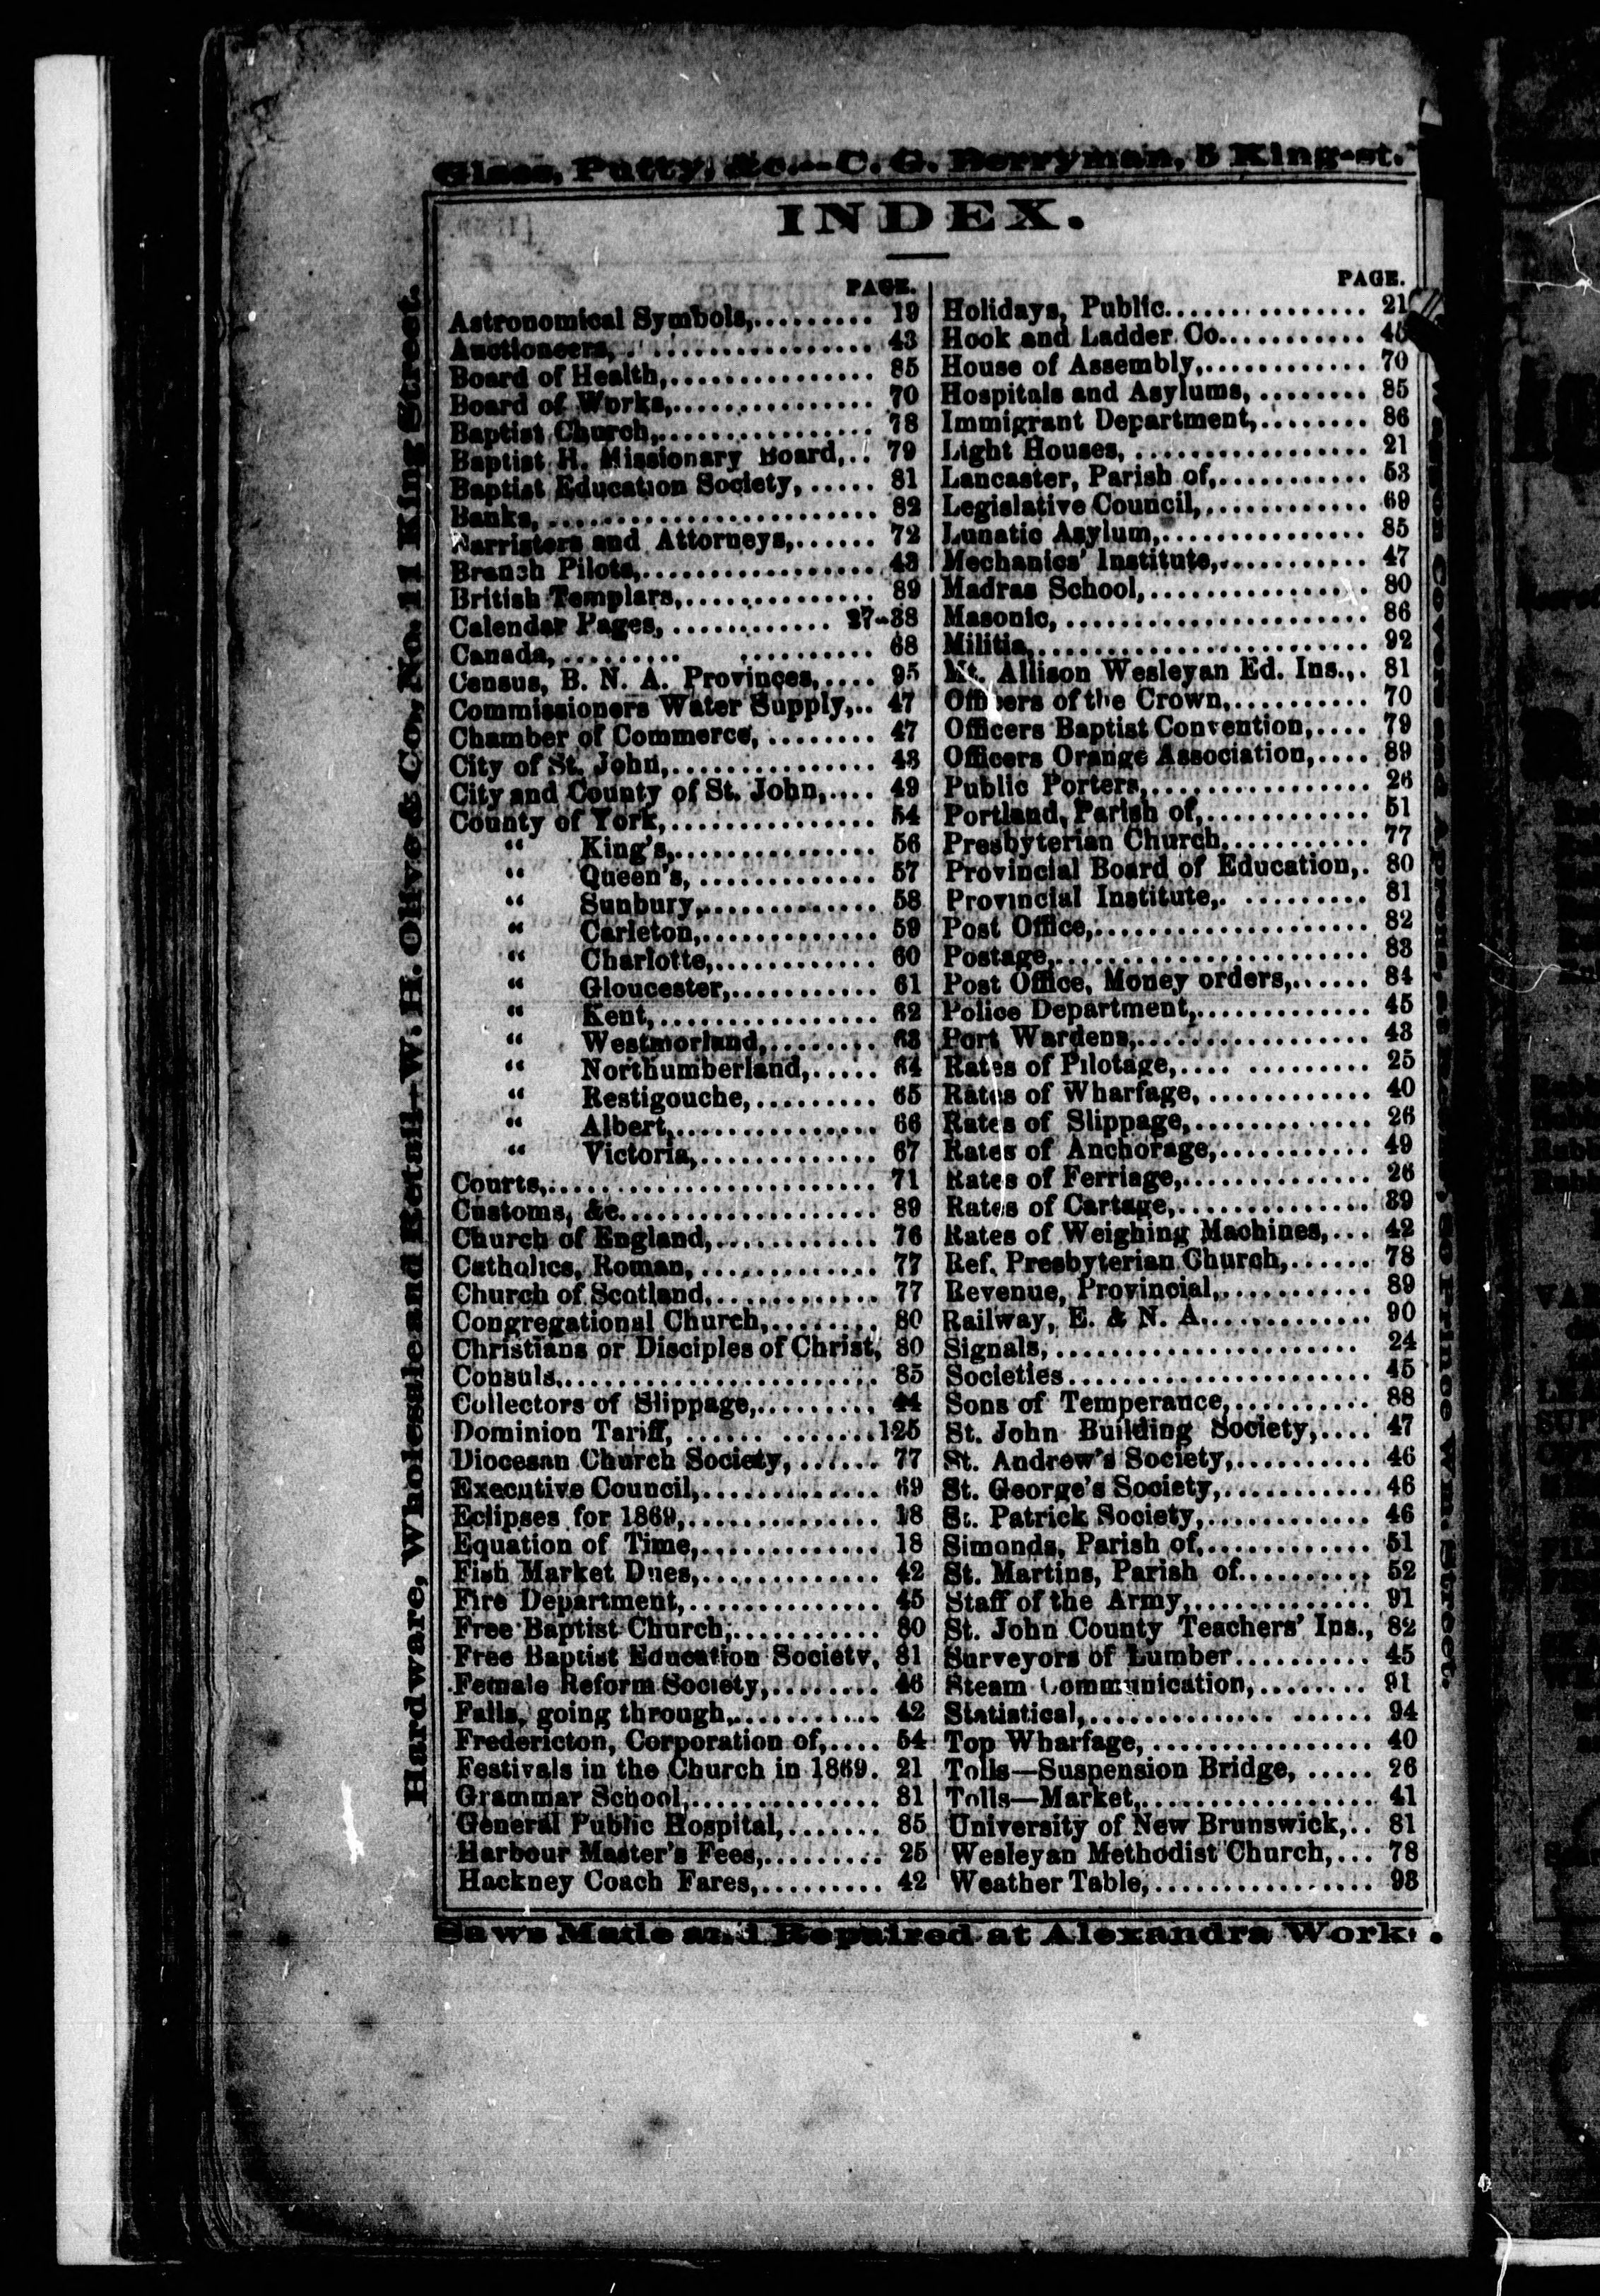 Glass, Putty, &c.—C. G. Berryman, 5 King-st.
INDEX.
PAGE.
Astronomical Symbols,......... 19
Auctioneers,................ 43
Board of Health,............... 85
Board of Works,............... 70
Baptist Church,................ 78
Baptist H. Missionary Board,.. 79
Baptist Education Society,..... 81
Banks,........................ 82
Barristers and Attorneys,...... 72
Branch Pilots,................. 43
British Templars,.............. 89
Calendar Pages,............ 27-38
Canada,......... .......... 68
Census, B. N. A. Provinces,.... 95
Commissioners Water Supply,.. 47
Chamber of Commerce,........ 47
City of St. John,............... 43
City and County of St. John,.... 49
County of York,............... 54
“ King's,............... 56
“ Queen's,............. 57
“ Sunbury,............. 58
“ Carleton,............. 59
“ Charlotte,............ 60
“ Gloucester,........... 61
“ Kent,................. 62
“ Westmorland,......... 63
“ Northumberland,..... 64
“ Restigouche,.......... 65
“ Albert,............... 66
“ Victoria,............. 67
Courts,........................ 71
Customs, &c................... 89
Church of England,............ 76
Catholics, Roman,............. 77
Church of Scotland,............ 77
Congregational Church,........ 80
Christians or Disciples of Christ, 80
Consuls,....................... 85
Collectors of Slippage,......... 44
Dominion Tariff, ...... .......125
Diocesan Church Society,...... 77
Executive Council,............. 69
Eclipses for 1869,.............. 18
Equation of Time,............. 18
Fish Market Dues,............. 42
Fire Department,.............. 45
Free Baptist Church,........... 80
Free Baptist Education Society, 81
Female Reform Society,........ 46
Falls, going through,........... 42
Fredericton, Corporation of,.... 54
Festivals in the Church in 1869. 21
Grammar School,.............. 81
General Public Hospital,....... 85
Harbour Master's Fees,......... 25
Hackney Coach Fares,......... 42
PAGE.
Holidays, Public............... 21
Hook and Ladder Co...........
House of Assembly,............ 70
Hospitals and Asylums,........ 85
Immigrant Department,........ 86
Light Houses,................. 21
Lancaster, Parish of,........... 53
Legislative Council,............ 69
Lunatic Asylum,............... 85
Mechanics' Institute,........... 47
Madras School,................ 80
Masonic,...................... 86
Militia,........................ 92
Mt. Allison Wesleyan Ed. Ins.,. 81
Officers of the Crown,.......... 70
Officers Baptist Convention,.... 79
Officers Orange Association,.... 89
Public Porters,................ 26
Portland, Parish of,............ 51
Presbyterian Church........... 77
Provincial Board of Education,. 80
Provincial Institute,. ......... 81
Post Office,.................... 82
Postage,....................... 83
Post Office, Money orders,...... 84
Police Department,............ 45
Port Wardens,................. 43
Rates of Pilotage,.... ......... 25
Rates of Wharfage,............ 40
Rates of Slippage,............. 26
Rates of Anchorage,........... 49
Rates of Ferriage,.............. 26
Rates of Cartage,............... 39
Rates of Weighing Machines,... 42
Ref. Presbyterian Church,...... 78
Revenue, Provincial,........... 89
Railway, E. & N. A............. 90
Signals,...................... 24
Societies....................... 45
Sons of Temperance,.......... 88
St. John Building Society,.... 47
St. Andrew's Society,.......... 46
St. George's Society,............ 46
St. Patrick Society,............ 46
Simonds, Parish of,............ 51
St. Martins, Parish of.......... 52
Staff of the Army,.............. 91
St. John County Teachers' Ins., 82
Surveyors of Lumber.......... 45
Steam Communication,........ 91
Statistical,.............. ...... 94
Top Wharfage,................ 40
Tolls—Suspension Bridge, ..... 26
Tolls—Market,................. 41
University of New Brunswick,.. 81
Wesleyan Methodist Church,... 78
Weather Table,................ 93
Saws Made and Repaired at Alexandra Works.
Hardware, Wholesale and Retail—W. H. Olive & Co., No. 11 King Street.
Waggon Covers and Aprons, at 80 Prince Wm. Street.